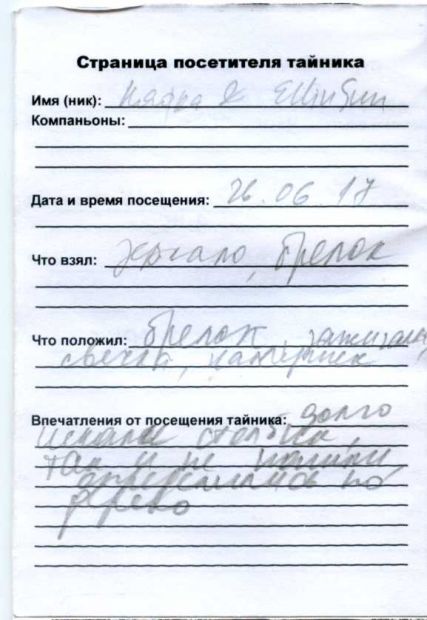 Страница посетителя тайника
Имя (ник): &
Компаньоны:
Дата и время посещения: 26.06 17
Что взял: зеркало, брелок
Что положил: брелок,
свечка,
Впечатления от посещения тайника: долго
искали столбик,
так и не нашли
определились по
дерево